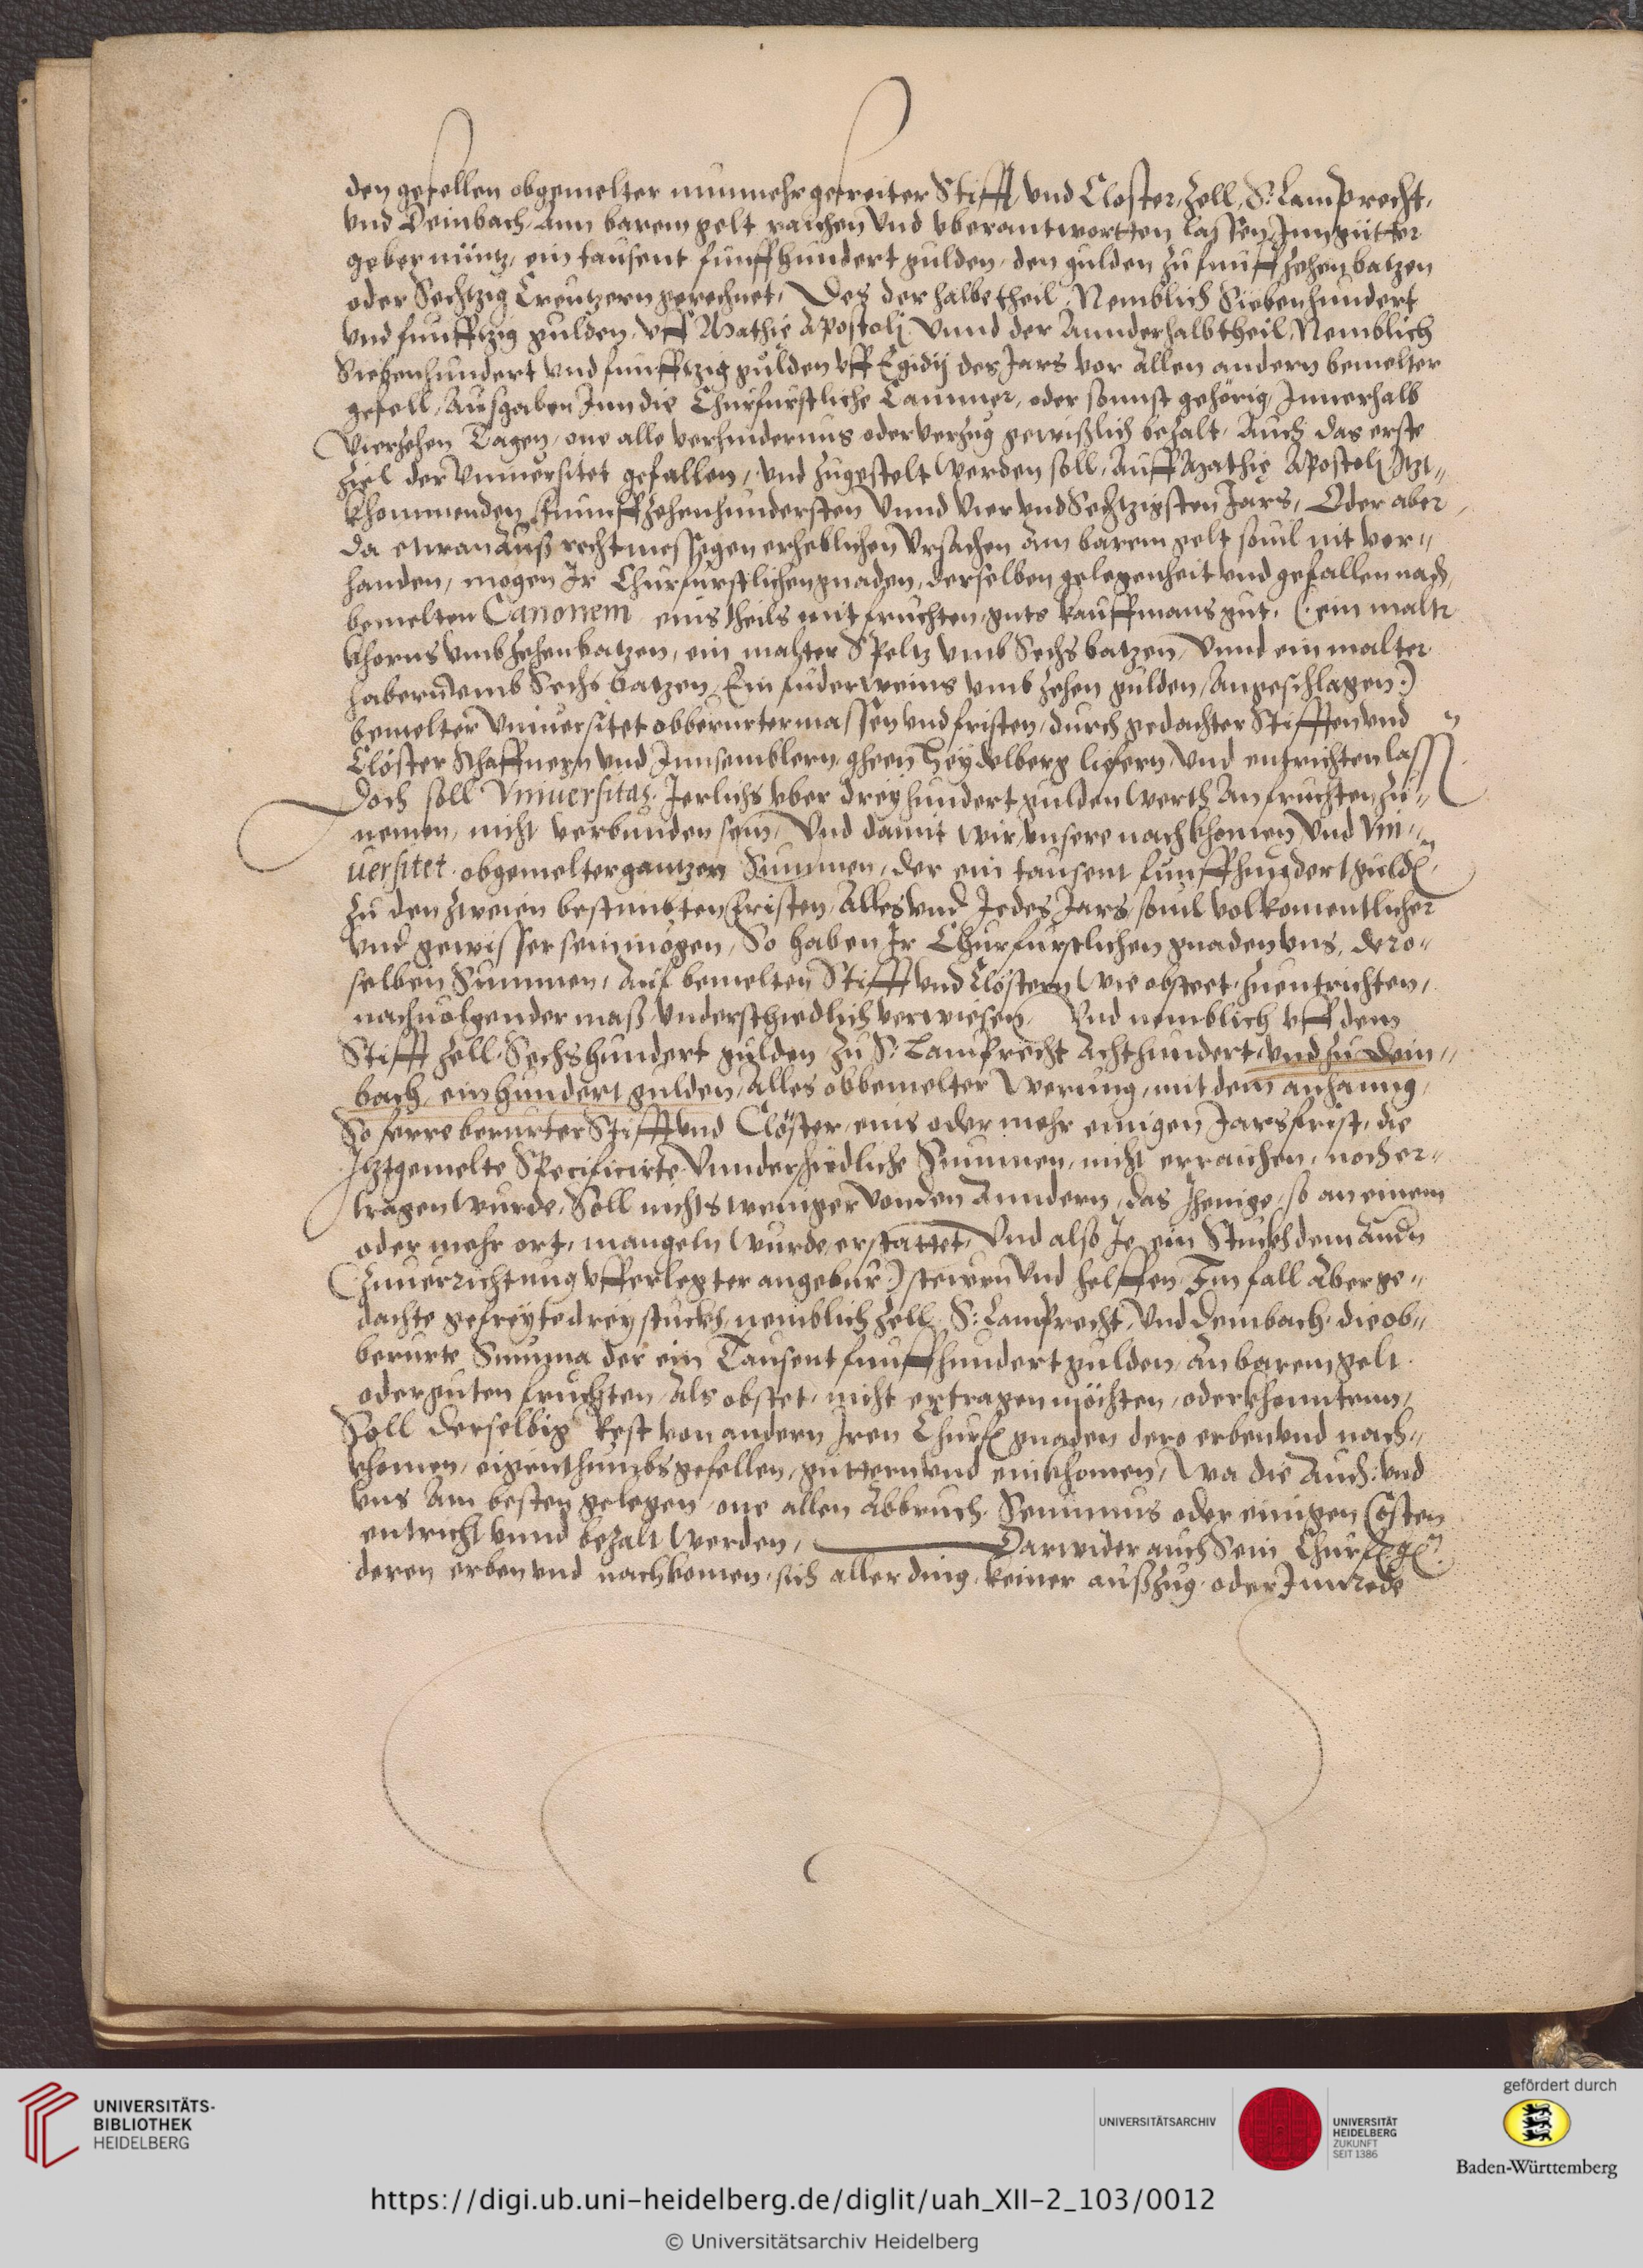 den gefellen obgemelter nunmehr gefreiter Stifft, vnd Closter, Zell, S: Lamprecht,
vnd Deinbach, ann barem gelt raichen vnd vberantwortten lassen, Inn gütter
geber müntz, ein tausent funffhundert gulden, den gulden zu funffzehen batzen
oder Sechtzig Creutzern gerechnet, Des der halbe theil, Nemblich Siebenhundert
vnd funfftzig gulden, vff Mathię Apostolj vnnd der Annder halb theil, Nemblich
Siebenhundert vnd funfftzig gulden vff Egidij des Jars vor allen andern bemelter
gefell, Ausgaben Inn die Churfurstliche Cammer, oder sonnst gehörig, Innerhalb
Vierzehen Tagen, one alle verhindernus oder verzug gewißlich bezalt, Auch das erste
Ziel der Vniuersitet gefallen, vnd zugestelt werden soll, Auff Mathię Apostolj Itzt-
khommenden funnffzehenhundersten vnnd vier vnd Sechtzigsten Jars, Oder aber
da etwan auß rechtmessigen erheblichen vrsachen am barem gelt souil nit vor-
handen, mogen Ir Churfurstlichen gnaden, derselben gelegenheit vnd gefallen nach,
bemelten Canonem eins theils mit fruchten, guts kauffmans gut, (: ein maltr
khorns vmb zehen batzen, ein malter Speltz vmb Sechs batzen, vnnd ein malter
habern vmb Sechs batzen, Ein fuder weins vmb zehen gulden, Angeschlagen:)
bemelter Vniuersitet obberurtermassen vnd fristen, durch gedachter Stifften vnd
Clöster Schaffnern vnd Innsemblern, gheen Heydelberg liefern, vnd entrichten lassn
Doch soll Vniuersitas Jerlichs vber dreyhundert gulden werth an fruchten zu-
nemen, nicht verbunden sein, Vnd damit wir, vnsere nachkhomen, vnd Vni-
uersitet obgemelter gantzen Summen, der ein tausent funffhundert guldn,
zu den zweien bestimbten fristen, Alles vnd Jedes Jars, souil volkomentlicher
vnd gewisser sein mögen, So haben Ir Churfurstlichen gnaden vns, dero-
selben Summen, Auf bemelten Stifft vnd Clöstern, wie obsteet, zuentrichten,
nachuolgender maß, vnderschiedlich verwiesen, Vnd nemblich vff dem
Stifft Zell, Sechshundert gulden, zu S: Lamprecht Achthundert, vnd zu Dein-
bach, einhundert gulden, Alles obbemelter werung, mit dem anhanng,
So ferre berurter Stifft vnd Clöster, eins oder mehr einigen Jarsfrist, die
Itztgemelte Specificirte vnnderschiedliche Summen, nicht erraichen, noch er-
tragen wurde, Soll nichts weniger von den Anndern, das Jhenige, so an einem
oder mehr ort, mangeln wurde, erstattet, Vnd also Je ein Stuckh dem Andn
(:zuuerrichtung vfferlegter angebür:) stewrn vnd helffen, Im fall aber ge-
dachte gefreyte drey stuckh, nemblich Zell, S: Lamprecht, vnd Deinbach, die ob-
berurte Summa der ein Tausent funffhundert gulden, an barem gelt
oder guten fruchten, Als obstet, nicht ertragen möchten, oder khonnten,
Soll derselbig Rest von andern Iren Churf gnaden dero erben vnd nach-
khomen, eigenthumbs gefellen, güttern vnd einkhomen, Wa die Auch vnd
vns am besten gelegen, one allen Abbruch, Seumnus oder einigen Costen
entricht vnnd bezalt werden, Darwider auch Sein Churf. g.
deren erben vnd nachkomen, sich aller ding, keiner außzug, oder Innrede
UNIVERSITÄTS-
BIBLIOTHEK
HEIDELBERG
UNIVERSITÄTSARCHIV
UNIVERSITÄT
HEIDELBERG
ZUKUNFT
SEIT 1386
gefördert durch
Baden-Württemberg
https://digi.ub.uni-heidelberg.de/diglit/uah_XII-2_103/0012
© Universitätsarchiv Heidelberg